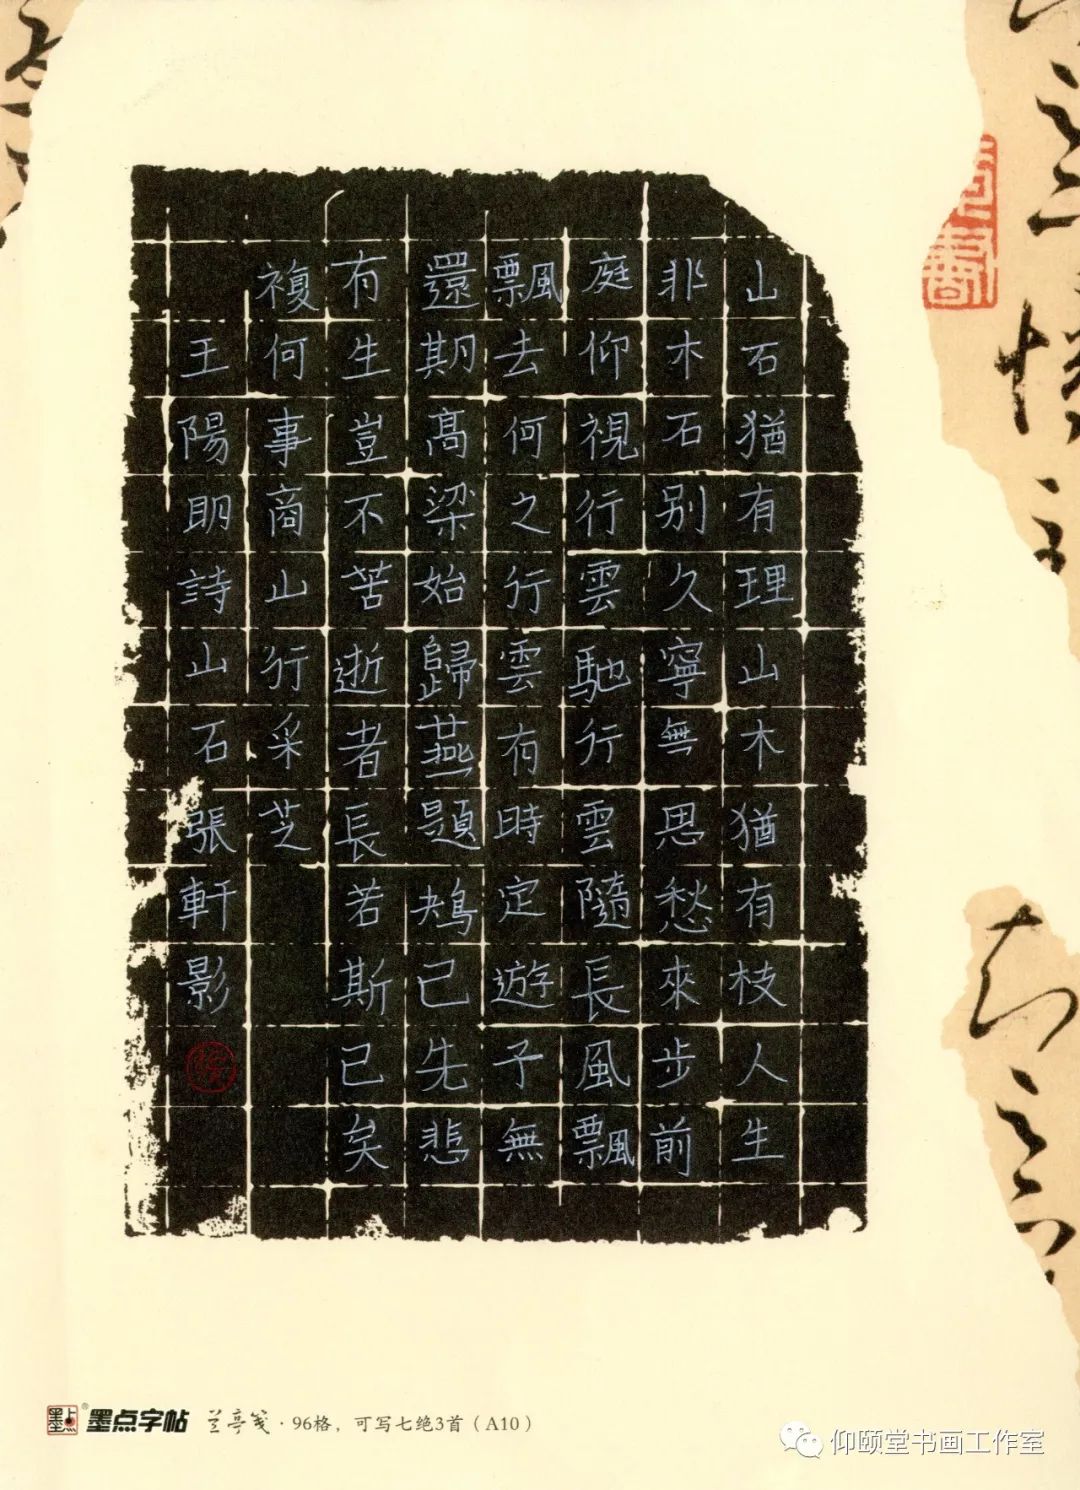 山石猶有理山木猶有枝人生
非木石别久寧無思愁來步前
庭仰視行雲馳行雲隨長風飄
飄去何之行雲有時定遊子無
還期高梁始歸燕題鴂已先悲
有生豈不苦逝者長若斯已矣
複何事商山行采芝
王陽明詩山石張軒影
墨点字帖 兰亭笺·96格，可写七绝3首（A10）
仰颐堂书画工作室